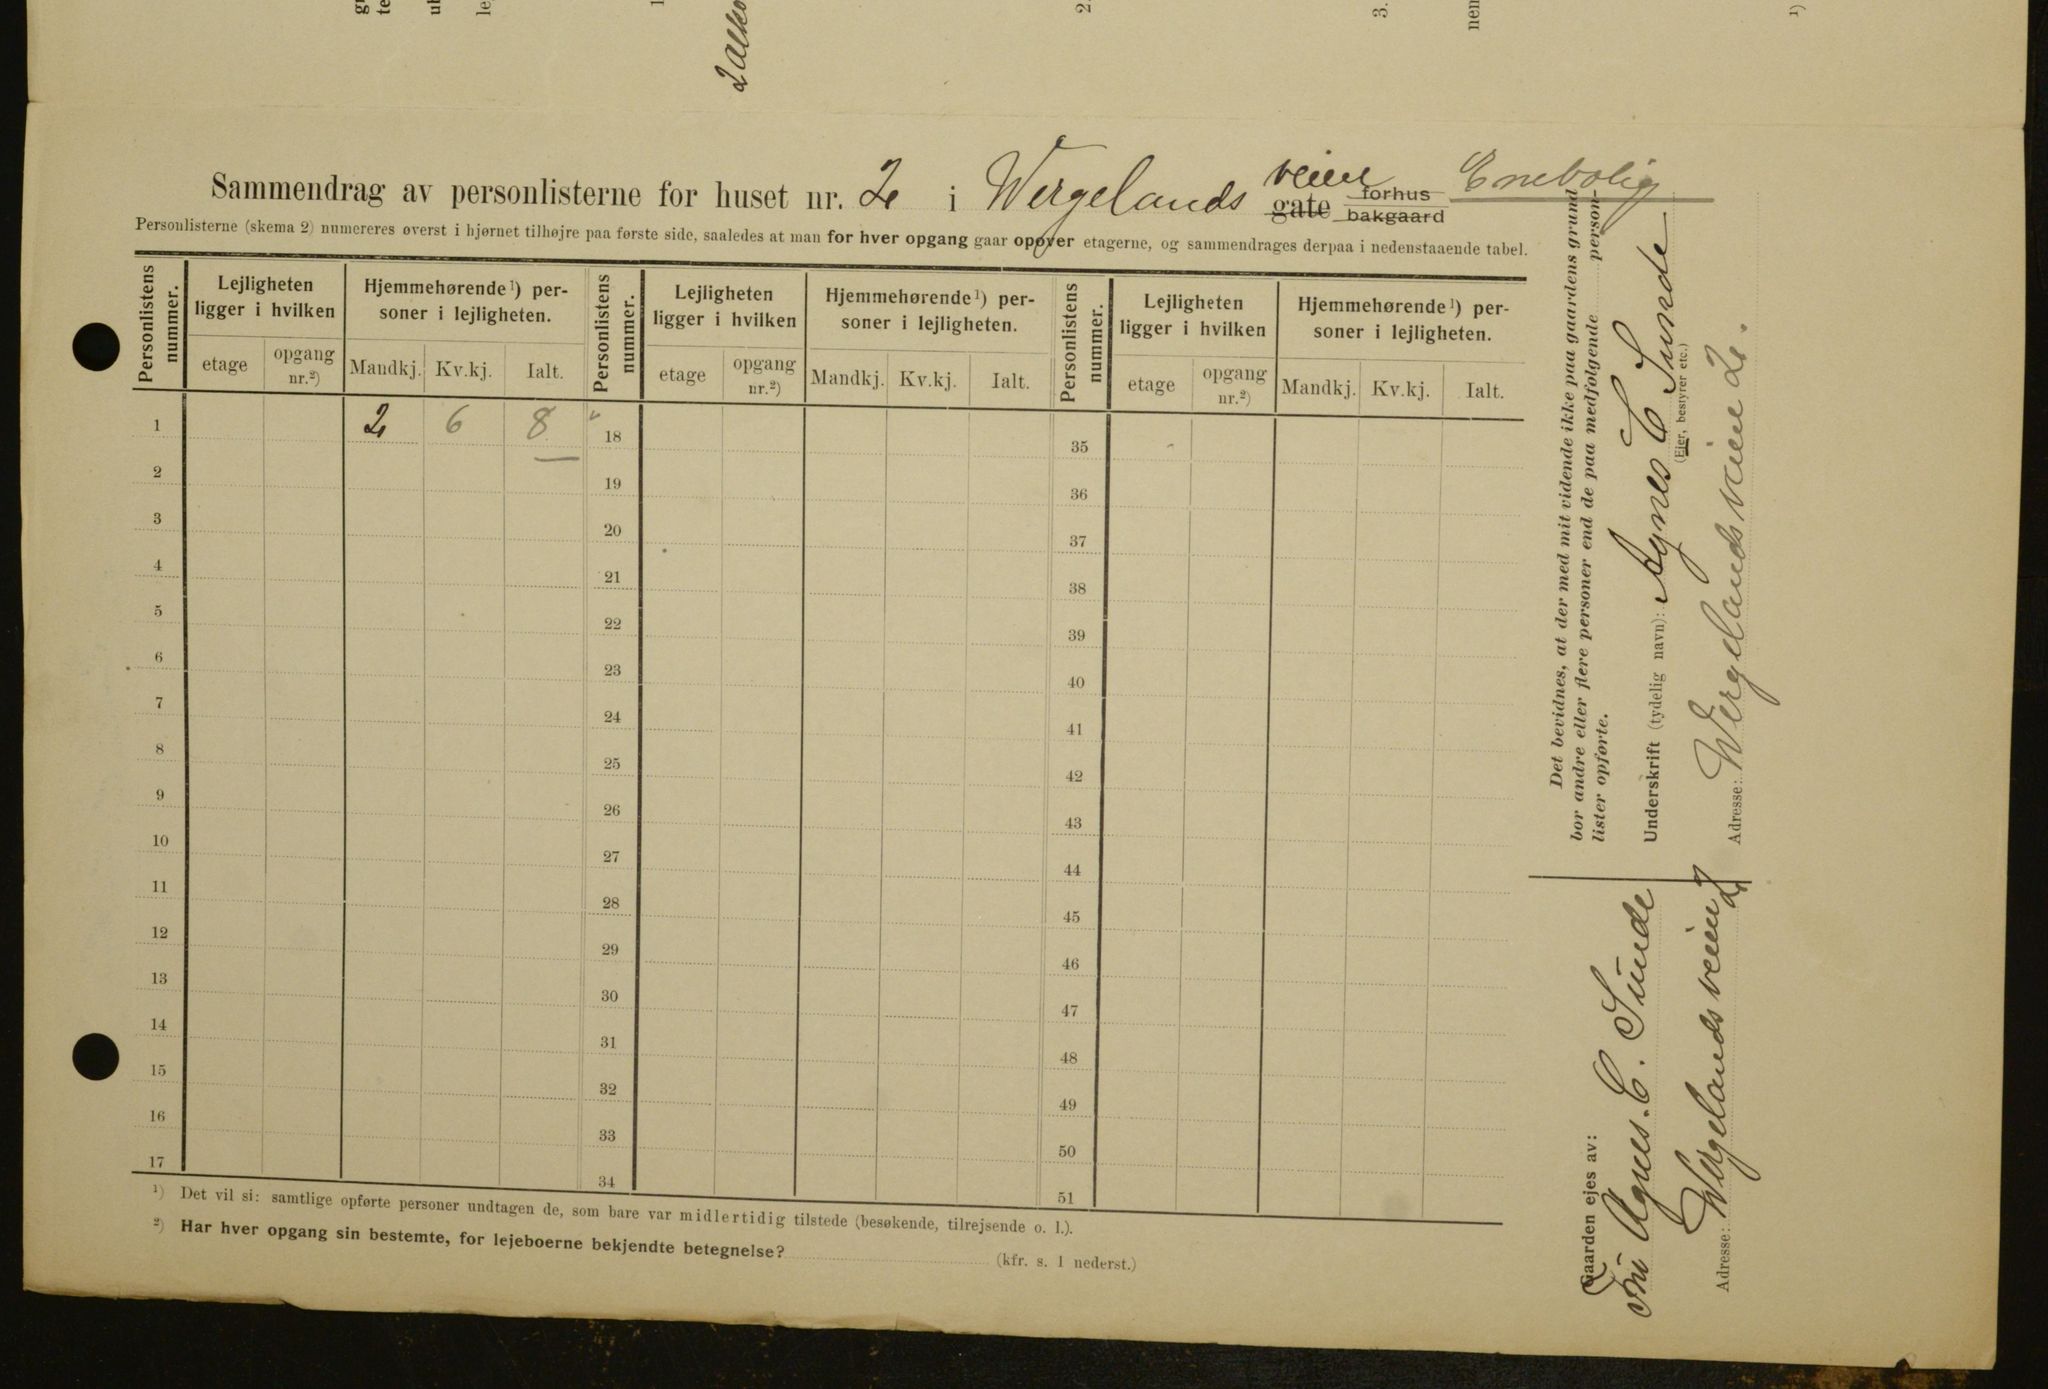 2 alko
Sammendrag av personlisterne for huset nr. 2 i Wergelands veien gate forhus bakgaard Enebolig
Personlisterne (skema 2) numereres øverst i hjørnet tilhøjre paa første side, saaledes at man for hver opgang gaar opover etagerne, og sammendrages derpaa i nedenstaaende tabel.
Personlistens nummer. Lejligheten ligger i hvilken Hjemmehørende¹) personer i lejligheten. Personlistens nummer. Lejligheten ligger i hvilken Hjemmehørende¹) per-soner i lejligheten. Personlistens nummer. Lejligheten ligger i hvilken Hjemmehørende¹) per-soner i lejligheten.
etage opgang nr.²) Mandkj. Kv.kj. Ialt. etage opgang nr.²) Mandkj. Kv.kj. Ialt. etage opgang nr.²) Mandkj. Kv.kj. Ialt.
1 2 6 8 18 35
2 19 36
3 20 37
4 21 38
5 22 39
6 23 40
7 24 41
8 25 42
9 26 43
10 27 44
11 28 45
12 29 46
13 30 47
14 31 48
15 32 49
16 33 50
17 34 51
¹) Det vil si: samtlige opførte personer undtagen de, som bare var midlertidig tilstede (besøkende, tilrejsende o. l.).
²) Har hver opgang sin bestemte, for lejeboerne bekjendte betegnelse? (kfr. s. 1 nederst.)
Det bevidnes, at der med mit vidende ikke paa gaardens grund
bor andre eller flere personer end de paa medfølgende person-
lister opførte.
Underskrift (tydelig navn): Agnes C Sunde
(Ejer, bestyrer etc.)
Adresse: Wergelandsveien 2.
Gaarden ejes av:
Fru Agnes. C. Sunde
Adresse: Wergelandsveien 2